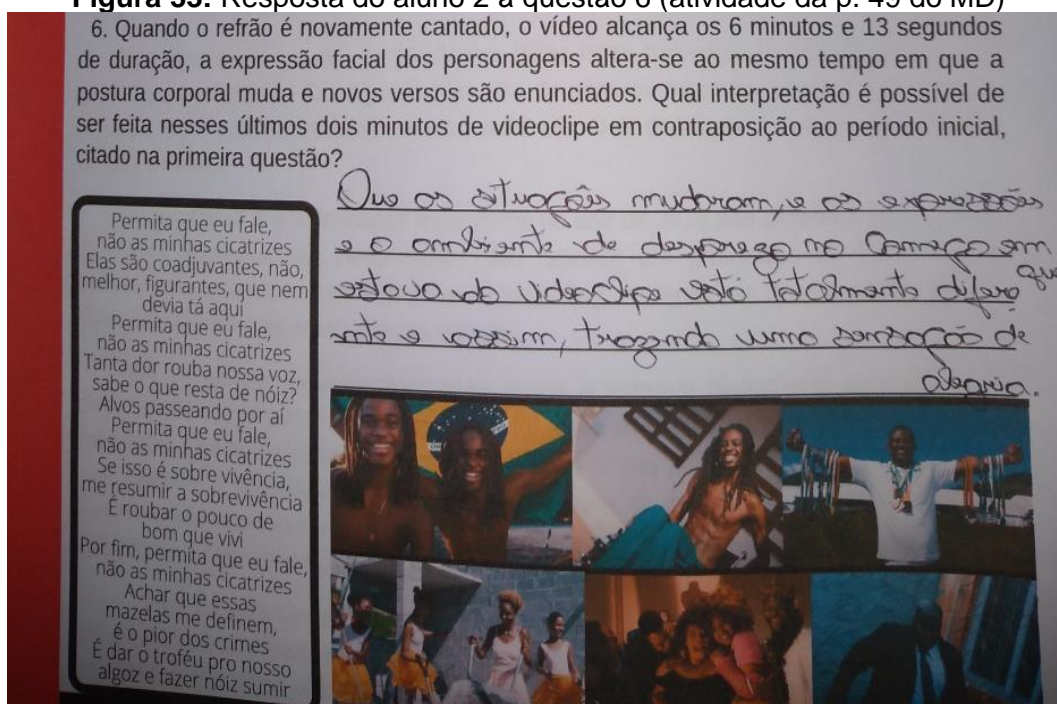 Figura 35: Resposta do aluno 2 à questão 6 (atividade da p. 49 do MD)
6. Quando o refrão é novamente cantado, o vídeo alcança os 6 minutos e 13 segundos
de duração, a expressão facial dos personagens altera-se ao mesmo tempo em que a
postura corporal muda e novos versos são enunciados. Qual interpretação é possível de
ser feita nesses últimos dois minutos de videoclipe em contraposição ao período inicial,
citado na primeira questão?
Que as situações mudaram, e as expressões
e o ambiente de desprezo no começo em
que
estava do videoclipe está totalmente difere
nte e assim, trazendo uma sensação de
alegria.
Permita que eu fale,
não as minhas cicatrizes
Elas são coadjuvantes, não,
melhor, figurantes, que nem
devia tá aqui
Permita que eu fale,
não as minhas cicatrizes
Tanta dor rouba nossa voz,
sabe o que resta de nóiz?
Alvos passeando por aí
Permita que eu fale,
não as minhas cicatrizes
Se isso é sobre vivência,
me resumir a sobrevivência
É roubar o pouco de
bom que vivi
Por fim, permita que eu fale,
não as minhas cicatrizes
Achar que essas
mazelas me definem,
é o pior dos crimes
É dar o troféu pro nosso
algoz e fazer nóiz sumir